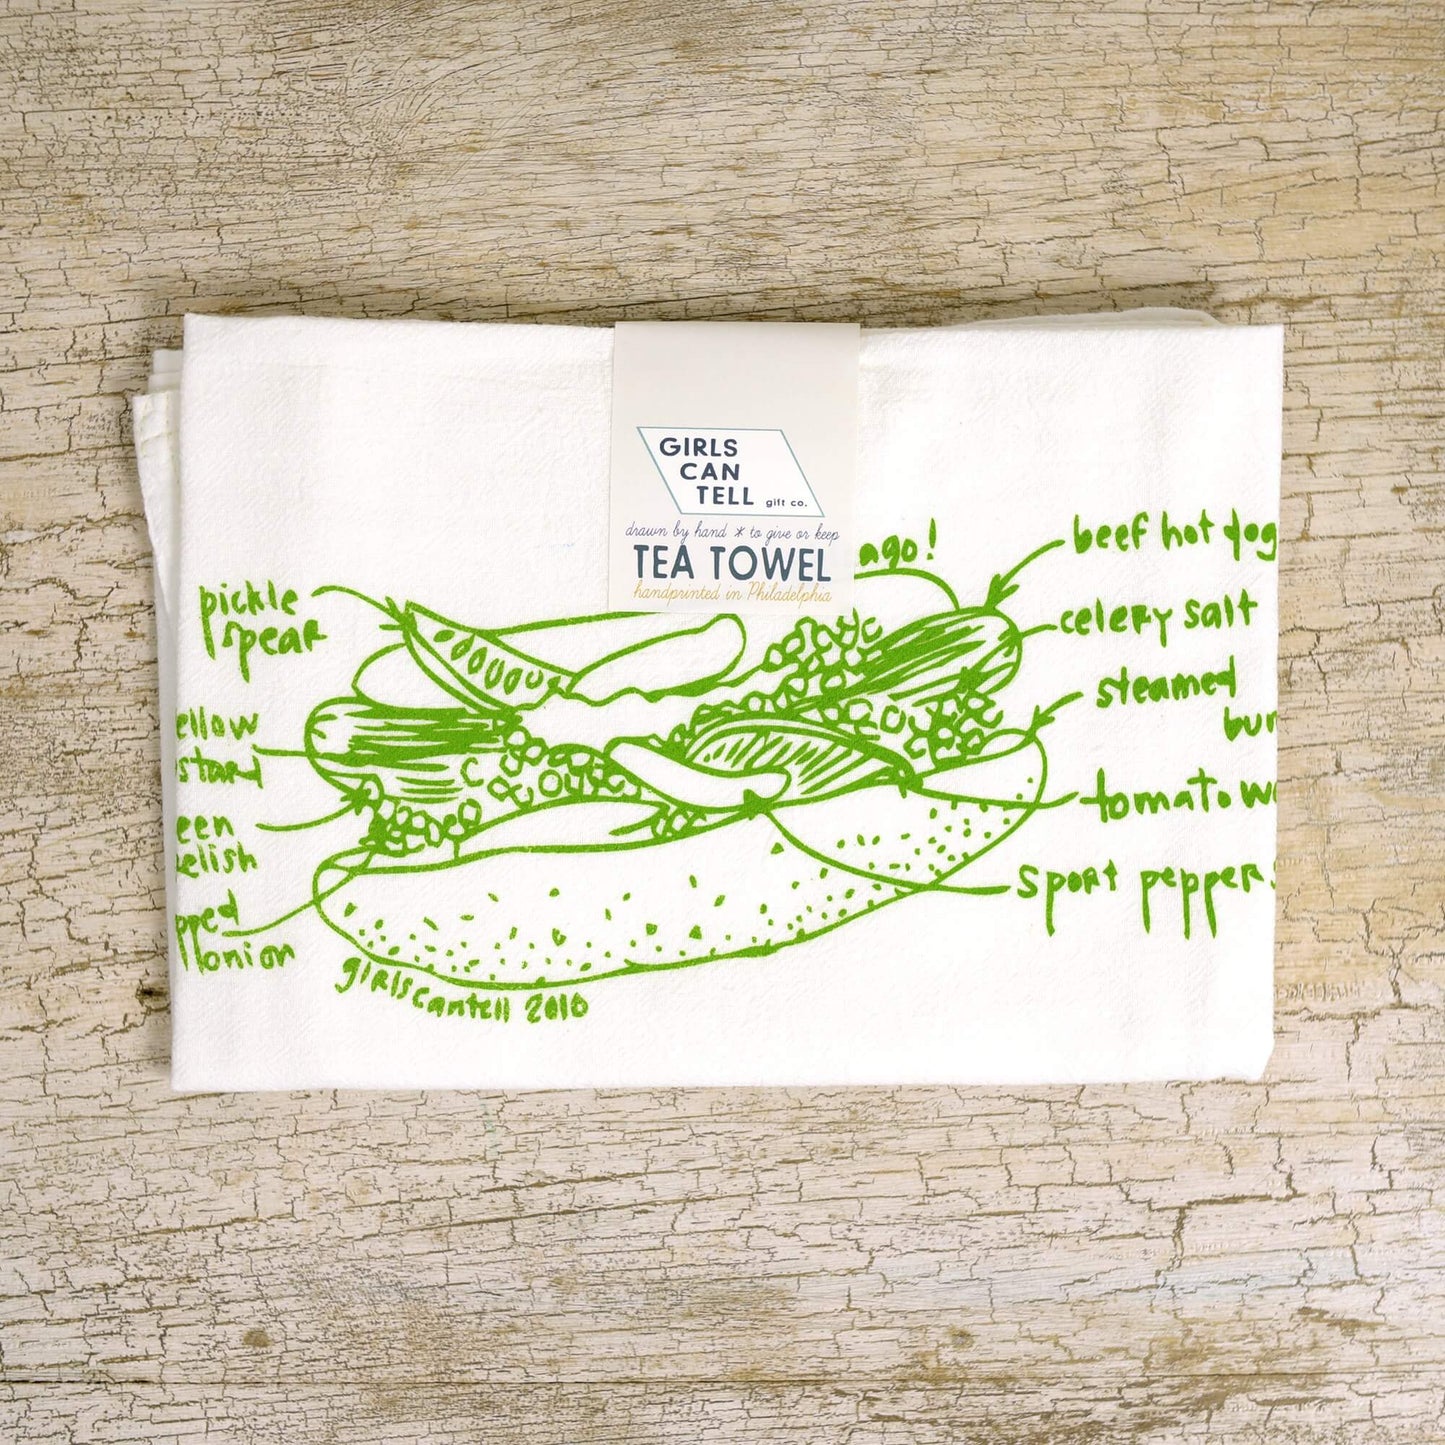 GIRLS
CAN
TELL gift co.
drawn by hand * to give or keep
TEA TOWEL
handprinted in Philadelphia
ago!
beef hot dog
pickle
spear
celery salt
steamed
bun
ellow
stard
tomato we
een
relish
sport peppers
pped
onion
girlscantell 2010